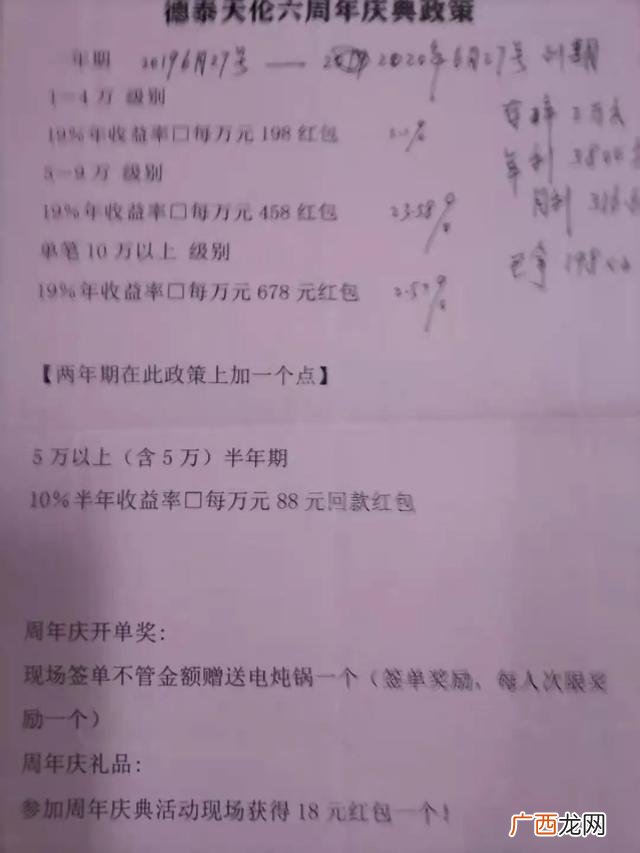 德泰天伦六周年庆典政策
一年期 2019 6月27号 — 2020年6月27号 到期
1-4万 级别
19%年收益率□每万元198红包
年利 3800
月利 316.6
5-9万 级别
19%年收益率□每万元458红包 23.58%
单笔10万以上 级别
19%年收益率□每万元678元红包
【两年期在此政策上加一个点】
5万以上（含5万）半年期
10%半年收益率□每万元88元回款红包
周年庆开单奖:
现场签单不管金额赠送电炖锅一个（签单奖励、每人次限奖
励一个）
周年庆礼品:
参加周年庆典活动现场获得18元红包一个!
广西龙网